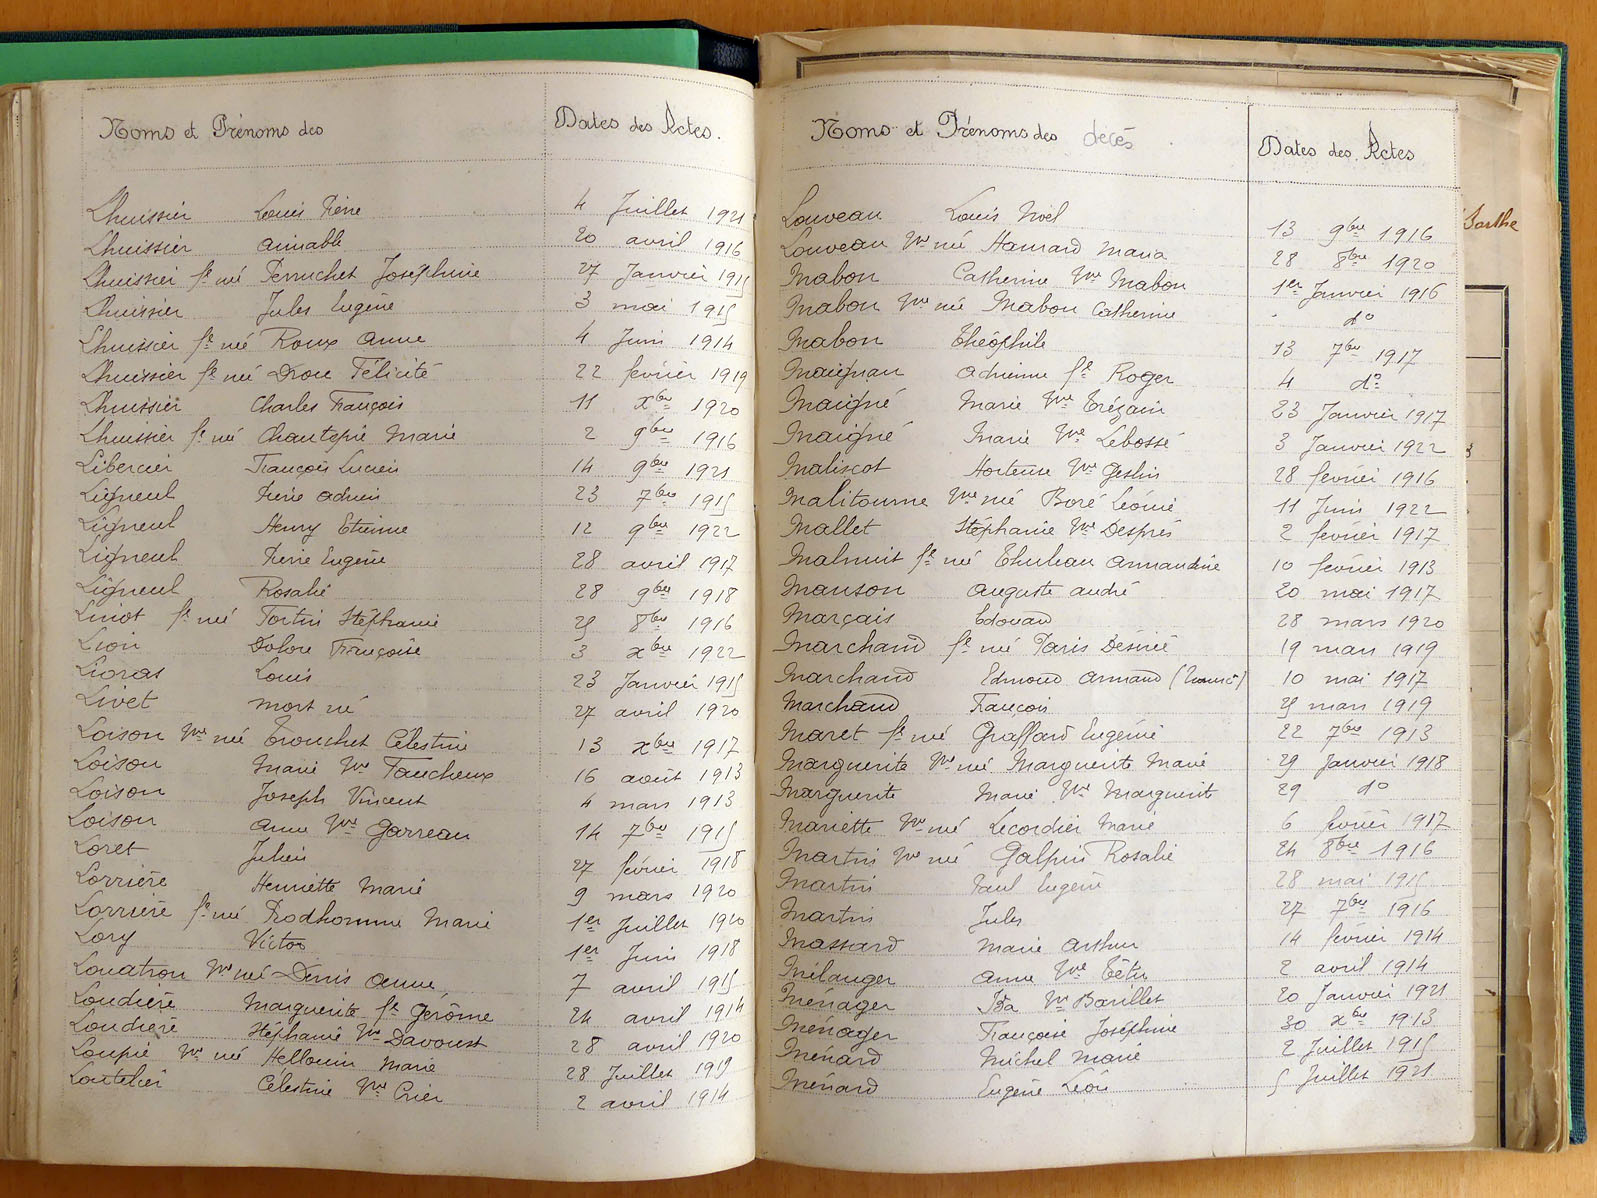 Noms et Prénoms des Dates des Actes.
Lhuissier Louis Pierre 4 Juillet 1921
Lhuissier Aimable 20 avril 1916
Lhuissier fe née Perruchet Joséphine 27 Janvier 1915
Lhuissier Jules Eugène 3 mai 1915
Lhuissier fe née Roux Anne 4 Juin 1914
Lhuissier fe née Drou Félicité 22 février 1919
Lhuissier Charles François 11 xbre 1920
Lhuissier fe née Chantepie Marie 2 9bre 1916
Libercier François Lucien 14 9bre 1921
Ligneul Pierre Adrien 23 7bre 1915
Ligneul Henry Etienne 12 9bre 1922
Ligneul Pierre Eugène 28 avril 1917
Ligneul Rosalie 28 9bre 1918
Linot fe née Tortin Stéphanie 25 8bre 1916
Lion Françoise 3 xbre 1922
Lioras Louis 23 Janvier 1915
Livet mort né 27 avril 1920
Loison Vve née Trouchet Célestine 13 xbre 1917
Loison Marie Vve Faucheux 16 août 1913
Loison Joseph Vincent 4 mars 1913
Loison Anne Vve Garreau 14 7bre 1915
Loret Julien 27 février 1918
Lorrière Henriette Marie 9 mars 1920
Lorrière fe née Prodhomme Marie 1er Juillet 1920
Lory Victor 1er Juin 1918
Louatron Vve née Denis Anne 7 avril 1915
Loudière Marguerite fe Gérôme 24 avril 1914
Loudière Stéphanie Vve Davoust 28 avril 1920
Loupie Vve née Hellouin Marie 28 Juillet 1919
Loutelier Célestine Vve Crier 2 avril 1914
Noms et Prénoms des décés Dates des Actes
Louveau Louis Noël 13 9bre 1916
Louveau Vve née Hamard Maria 28 8bre 1920
Mabon Catherine Vve Mabon 1er Janvier 1916
Mabon Vve née Mabon Catherine do
Mabon Théophile 13 7bre 1917
Maignan Adrienne fe Roger 4 do
Maigné Marie Vve Trégain 23 Janvier 1917
Maigné Marie Vve Lebossé 3 Janvier 1922
Maliscot Hortense Vve Geslin 28 février 1916
Malitourne Vve née Boré Léonie 11 Juin 1922
Mallet Stéphanie Vve Després 2 février 1917
Malnuit fe née Thuleau Armandine 10 février 1913
Manson Auguste André 20 mai 1917
Marçais Edouard 28 mars 1920
Marchand fe née Paris Désirée 19 mars 1919
Marchand Edmond Armand 10 mai 1917
Marchand François 25 mars 1919
Maret fe née Graffard Eugénie 22 7bre 1913
Marguerite Vve née Marguerite Marie 29 Janvier 1918
Marguerite Marie Vve Marguerite 29 do
Mariette Vve née Lecordier Marie 6 février 1917
Martin Vve née Galpin Rosalie 24 8bre 1916
Martin Paul Eugène 28 mai 1915
Martin Jules 27 7bre 1916
Massard Marie Arthur 14 février 1914
Mélanger Anne Vve Têtu 2 avril 1914
Ménager Vve Barillet 20 Janvier 1921
Ménager Françoise Joséphine 30 xbre 1913
Ménard Michel Marie 2 Juillet 1915
Ménard Eugène Léon 5 Juillet 1921
Sarthe